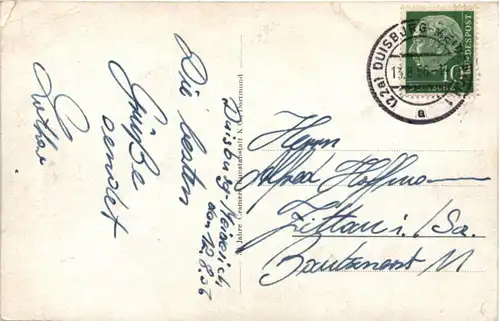 Duisburg-Meiderich
den 12.8.56
Die besten
Grüße
sendet
Lothar
Jahre Cramers Kunstanstalt K.G., Dortmund
Herrn
Alfred Hoffmann
Zittau i./Sa.
Bautznerst 11
(22a) DUISBURG-
13.8.56-11
a
10
DEUTSCHE BUNDESPOST
6